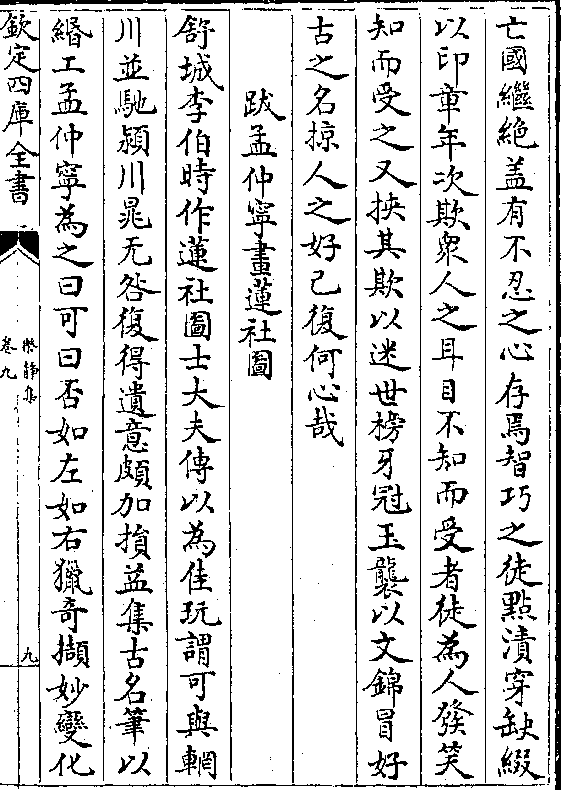 亡國繼絶盖有不忍之心存焉智巧之徒點漬穿缺綴
以印章年次欺衆人之耳目不知而受者徒為人發笑
知而受之又挾其欺以迷世榜牙冠玉襲以文錦冒好
古之名掠人之好己復何心哉
跋孟仲寧畫蓮社圖
舒城李伯時作蓮社圖士大夫傳以為佳玩謂可與輞
川並馳潁川晁无咎復得遺意頗加損益集古名筆以
緡工孟仲寧為之曰可曰否如左如右獵奇擷妙變化
欽定四庫全書
樂静集
卷九
九